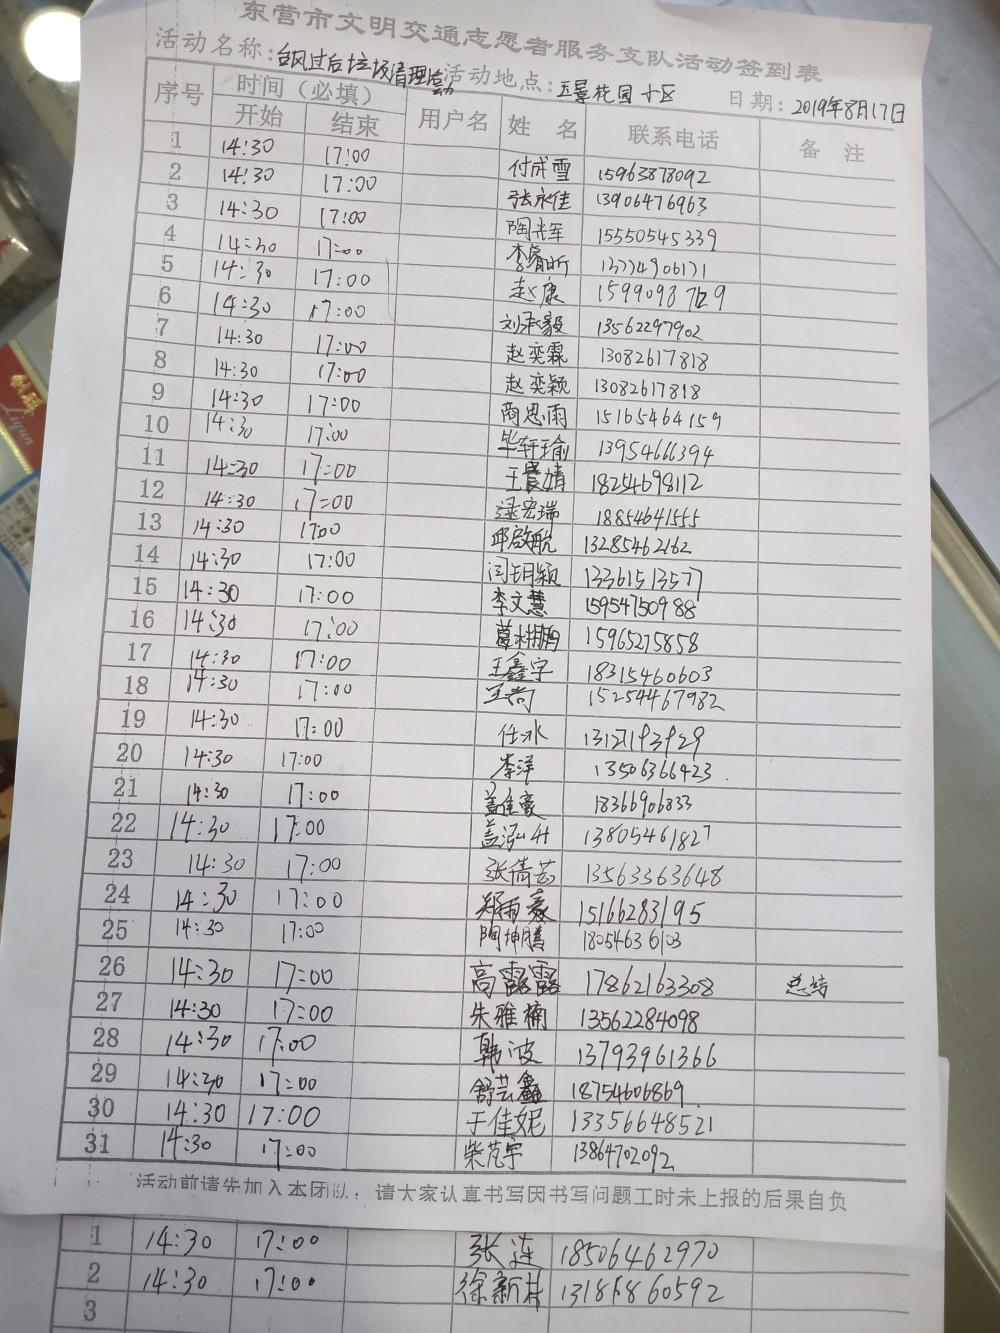 东营市文明交通志愿者服务支队活动签到表
活动名称:台风过后垃圾清理活动 活动地点:五景花园小区 日期:2019年8月17日
序号 时间(必填) 用户名 姓 名 联系电话 备 注
开始 结束
1 14:30 17:00 付成雪 15963878092
2 14:30 17:00 张永佳 13906476963
3 14:30 17:00 陶光军 15550545339
4 14:30 17:00 李睿昕 13774906171
5 14:30 17:00 赵康
6 14:30 17:00 刘承毅 13562297902
7 14:30 17:00 赵奕霖 13082617818
8 14:30 17:00 赵奕颖 13082617818
9 14:30 17:00 商思雨 15165464159
10 14:30 17:00 毕轩瑜 13954666394
11 14:30 17:00 王晨婧 18254698112
12 14:30 17:00 逯宏瑞 18854641555
13 14:30 17:00 邱啟航 13285462162
14 14:30 17:00 闫玥颖 13361513577
15 14:30 17:00 李文慧 15954750988
16 14:30 17:00 葛栩鹏 15965275858
17 14:30 17:00 王鑫宇 18315460603
18 14:30 17:00 王尚 15254467982
19 14:30 17:00 任冰 13127193929
20 14:30 17:00 李洋 13506366423
21 14:30 17:00 盖佳豪 18366906833
22 14:30 17:00 盖泓升 13805461827
23 14:30 17:00 张倩芸 13563363648
24 14:30 17:00 郑雨豪 15166283195
25 14:30 17:00 陶坤腾 18054636103
26 14:30 17:00 高露露 17862163308 总结
27 14:30 17:00 朱雅楠 13562284098
28 14:30 17:00 韩波 13793961366
29 14:30 17:00 舒芸鑫 18754606869
30 14:30 17:00 于佳妮 13356648521
31 14:30 17:00 柴范宇 13864702092
活动前请先加入本团队,请大家认真书写因书写问题工时未上报的后果自负
1 14:30 17:00 张连 18506462970
2 14:30 17:00 徐新 13186860592
3